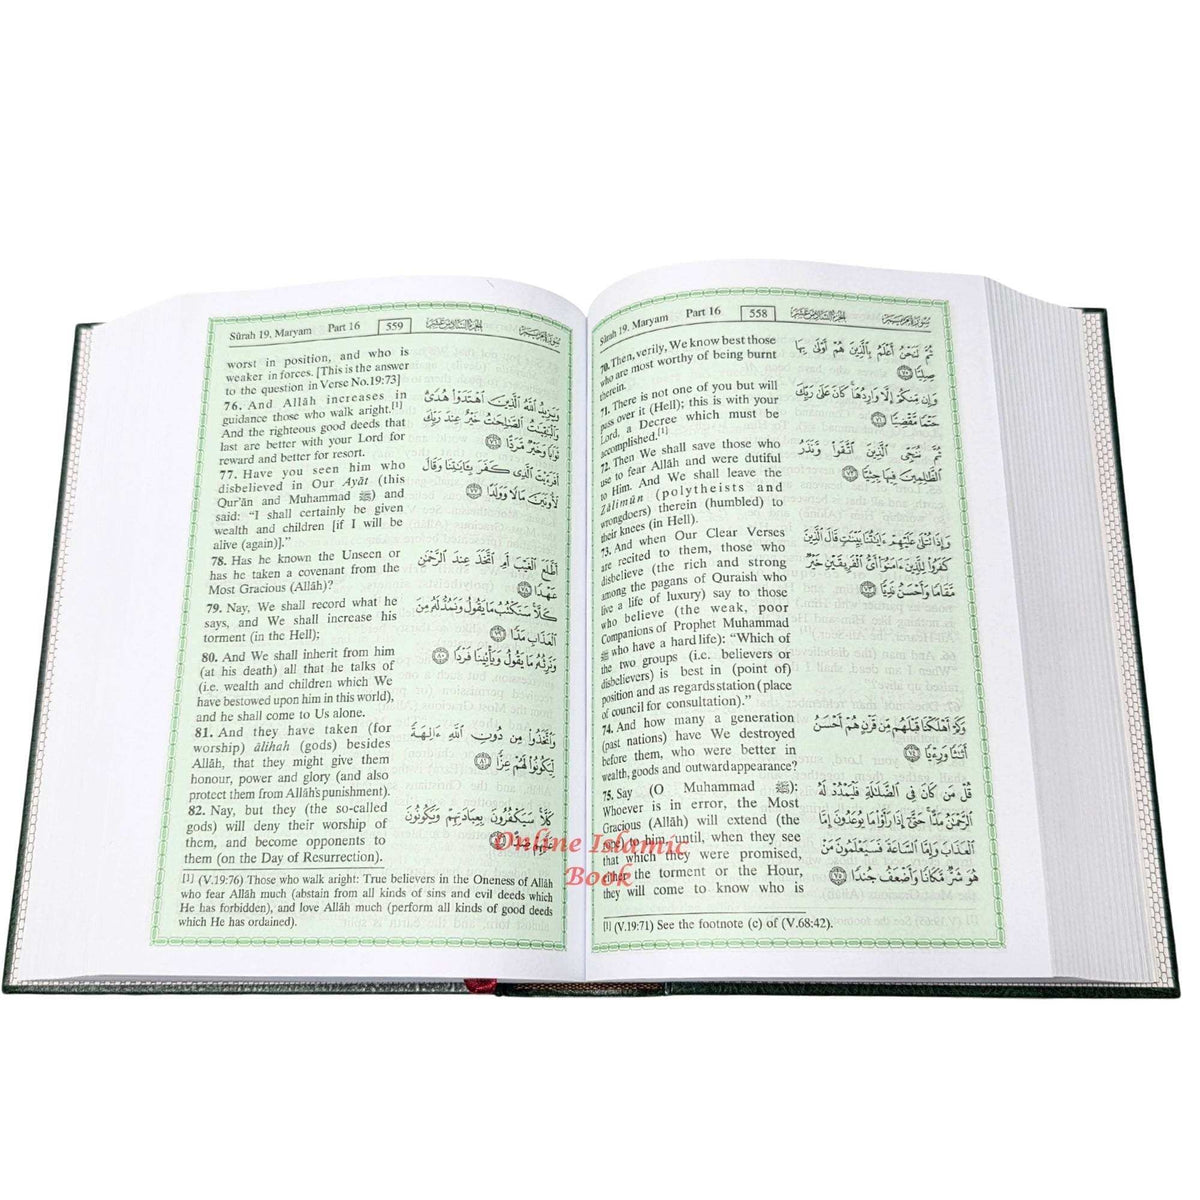 Sûrah 19. Maryam Part 16 558 الجزء السادس عشر سورة مريم
70. Then, verily, We know best those
who are most worthy of being burnt
therein.
71. There is not one of you but will
pass over it (Hell); this is with your
Lord, a Decree which must be
accomplished.[1]
72. Then We shall save those who
use to fear Allâh and were dutiful
to Him. And We shall leave the
Zâlimûn (polytheists and
wrongdoers) therein (humbled) to
their knees (in Hell).
73. And when Our Clear Verses
are recited to them, those who
disbelieve (the rich and strong
among the pagans of Quraish who
live a life of luxury) say to those
who believe (the weak, poor
Companions of Prophet Muhammad
ﷺ who have a hard life): “Which of
the two groups (i.e. believers or
disbelievers) is best in (point of)
position and as regards station (place
of council for consultation).”
74. And how many a generation
(past nations) have We destroyed
before them, who were better in
wealth, goods and outward appearance?
75. Say (O Muhammad ﷺ):
Whoever is in error, the Most
Gracious (Allâh) will extend (the
rope) to him, until, when they see
that which they were promised,
either the torment or the Hour,
they will come to know who is
ثُمَّ لَنَحْنُ أَعْلَمُ بِالَّذِينَ هُمْ أَوْلَىٰ بِهَا
صِلِيًّا ٧٠
وَإِن مِّنكُمْ إِلَّا وَارِدُهَا ۚ كَانَ عَلَىٰ رَبِّكَ
حَتْمًا مَّقْضِيًّا ٧١
ثُمَّ نُنَجِّى الَّذِينَ اتَّقَوا وَّنَذَرُ
الظَّالِمِينَ فِيهَا جِثِيًّا ٧٢
وَإِذَا تُتْلَىٰ عَلَيْهِمْ ءَايَاتُنَا بَيِّنَاتٍ قَالَ الَّذِينَ
كَفَرُوا لِلَّذِينَ ءَامَنُوا أَىُّ الْفَرِيقَيْنِ خَيْرٌ
مَّقَامًا وَأَحْسَنُ نَدِيًّا ٧٣
وَكَمْ أَهْلَكْنَا قَبْلَهُم مِّن قَرْنٍ هُمْ أَحْسَنُ
أَثَاثًا وَرِءْيًا ٧٤
قُلْ مَن كَانَ فِى الضَّلَالَةِ فَلْيَمْدُدْ لَهُ
الرَّحْمَٰنُ مَدًّا ۚ حَتَّىٰ إِذَا رَأَوْا مَا يُوعَدُونَ إِمَّا
الْعَذَابَ وَإِمَّا السَّاعَةَ فَسَيَعْلَمُونَ مَنْ
هُوَ شَرٌّ مَّكَانًا وَأَضْعَفُ جُندًا ٧٥
[1] (V.19:71) See the footnote (c) of (V.68:42).
Sûrah 19. Maryam Part 16 559 الجزء السادس عشر سورة مريم
worst in position, and who is
weaker in forces. [This is the answer
to the question in Verse No.19:73]
76. And Allâh increases in
guidance those who walk aright.[1]
And the righteous good deeds that
last are better with your Lord for
reward and better for resort.
77. Have you seen him who
disbelieved in Our Ayât (this
Qur’ân and Muhammad ﷺ) and
said: “I shall certainly be given
wealth and children [if I will be
alive (again)].”
78. Has he known the Unseen or
has he taken a covenant from the
Most Gracious (Allâh)?
79. Nay, We shall record what he
says, and We shall increase his
torment (in the Hell);
80. And We shall inherit from him
(at his death) all that he talks of
(i.e. wealth and children which We
have bestowed upon him in this world),
and he shall come to Us alone.
81. And they have taken (for
worship) âlihah (gods) besides
Allâh, that they might give them
honour, power and glory (and also
protect them from Allâh’s punishment).
82. Nay, but they (the so-called
gods) will deny their worship of
them, and become opponents to
them (on the Day of Resurrection).
وَيَزِيدُ اللَّهُ الَّذِينَ اهْتَدَوْا هُدًى ۗ
وَالْبَاقِيَاتُ الصَّالِحَاتُ خَيْرٌ عِندَ رَبِّكَ
ثَوَابًا وَخَيْرٌ مَّرَدًّا ٧٦
أَفَرَءَيْتَ الَّذِى كَفَرَ بِـَٔايَاتِنَا وَقَالَ
لَأُوتَيَنَّ مَالًا وَوَلَدًا ٧٧
أَطَّلَعَ الْغَيْبَ أَمِ اتَّخَذَ عِندَ الرَّحْمَٰنِ
عَهْدًا ٧٨
كَلَّا ۚ سَنَكْتُبُ مَا يَقُولُ وَنَمُدُّ لَهُ مِنَ
الْعَذَابِ مَدًّا ٧٩
وَنَرِثُهُ مَا يَقُولُ وَيَأْتِينَا فَرْدًا ٨٠
وَاتَّخَذُوا مِن دُونِ اللَّهِ ءَالِهَةً
لِّيَكُونُوا لَهُمْ عِزًّا ٨١
كَلَّا ۚ سَيَكْفُرُونَ بِعِبَادَتِهِمْ وَيَكُونُونَ
عَلَيْهِمْ ضِدًّا ٨٢
[1] (V.19:76) Those who walk aright: True believers in the Oneness of Allâh
who fear Allâh much (abstain from all kinds of sins and evil deeds which
He has forbidden), and love Allâh much (perform all kinds of good deeds
which He has ordained).
Online Islamic
Book